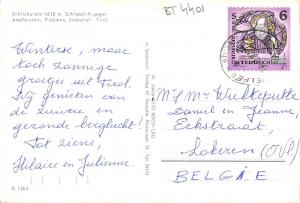 Schlickeralm 1616 m, Schlepplift gegen
Ampferstein, Fulpmes, Stubaital - Tirol
BT 4401
Winterse, maar
toch zonnige
groetjes uit Tirol.
Wij genieten van
de zuivere en
gezonde berglucht!
Tot ziens,
Hilaire en Julienne.
6
S
REPUBLIK
ÖSTERREICH
TELFES
M/M Wulteputte
Daniel en Jeanne,
Eckstraat,
Lokeren (OVl)
BELGIË